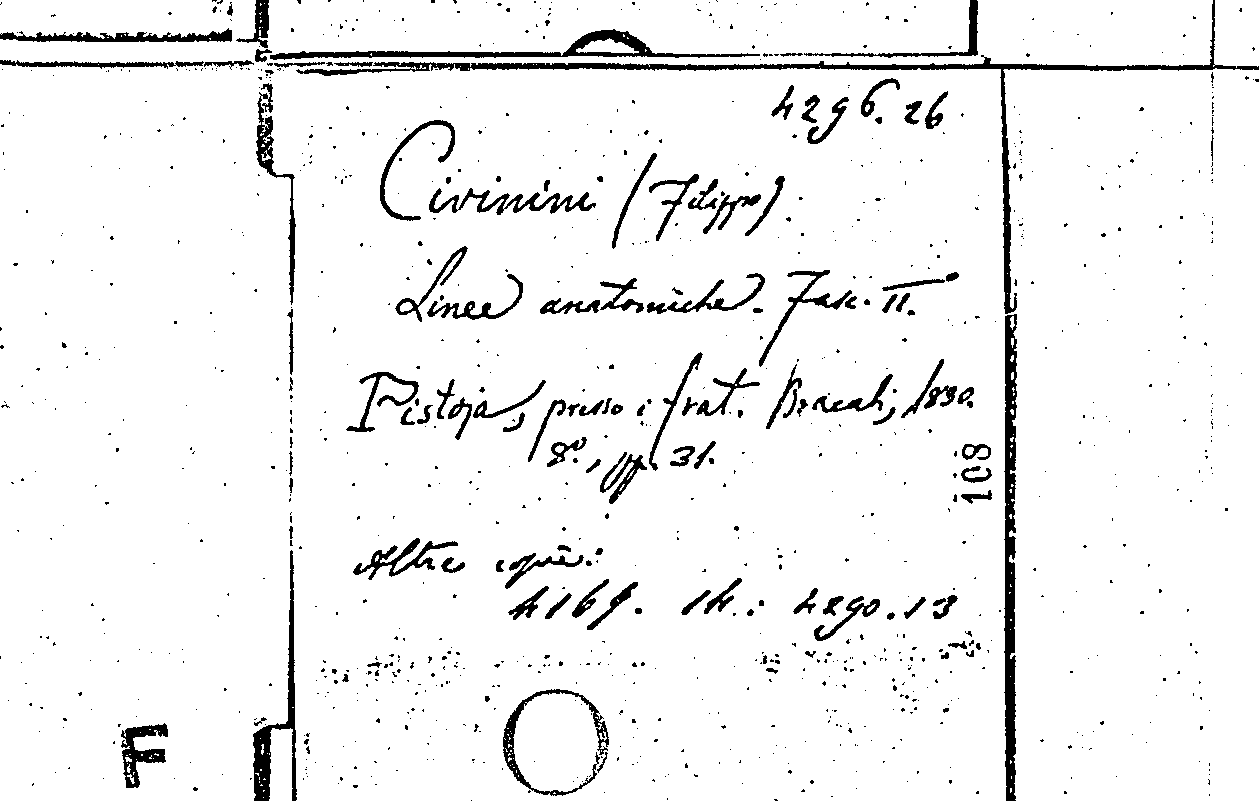 4296. 26
Civinini (Filippo)
Linee anatomiche. Fasc. II.
Pistoja, presso i frat. Bracali, 1830.
8º., pp. 31.
108
Altre copie:
14. : 4290. 13
F